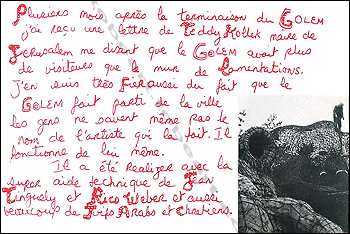 Plusieurs mois après la terminaison du GOLEM
j'ai reçu une lettre de Teddy Kollek maire de
Jerusalem me disant que le GOLEM avait plus
de visiteurs que le mur de Lamentations.
J'en suis très fier aussi du fait que le
GOLEM fait parti de la ville
les gens ne savent même pas le
nom de l'artiste qui l'a fait. Il
fonctionne de lui même.
Il a été Realizer avec la
super aide technique de Jean
Tinguely et Rico Weber et aussi
beaucoup de Juifs Arabs et chretiens.